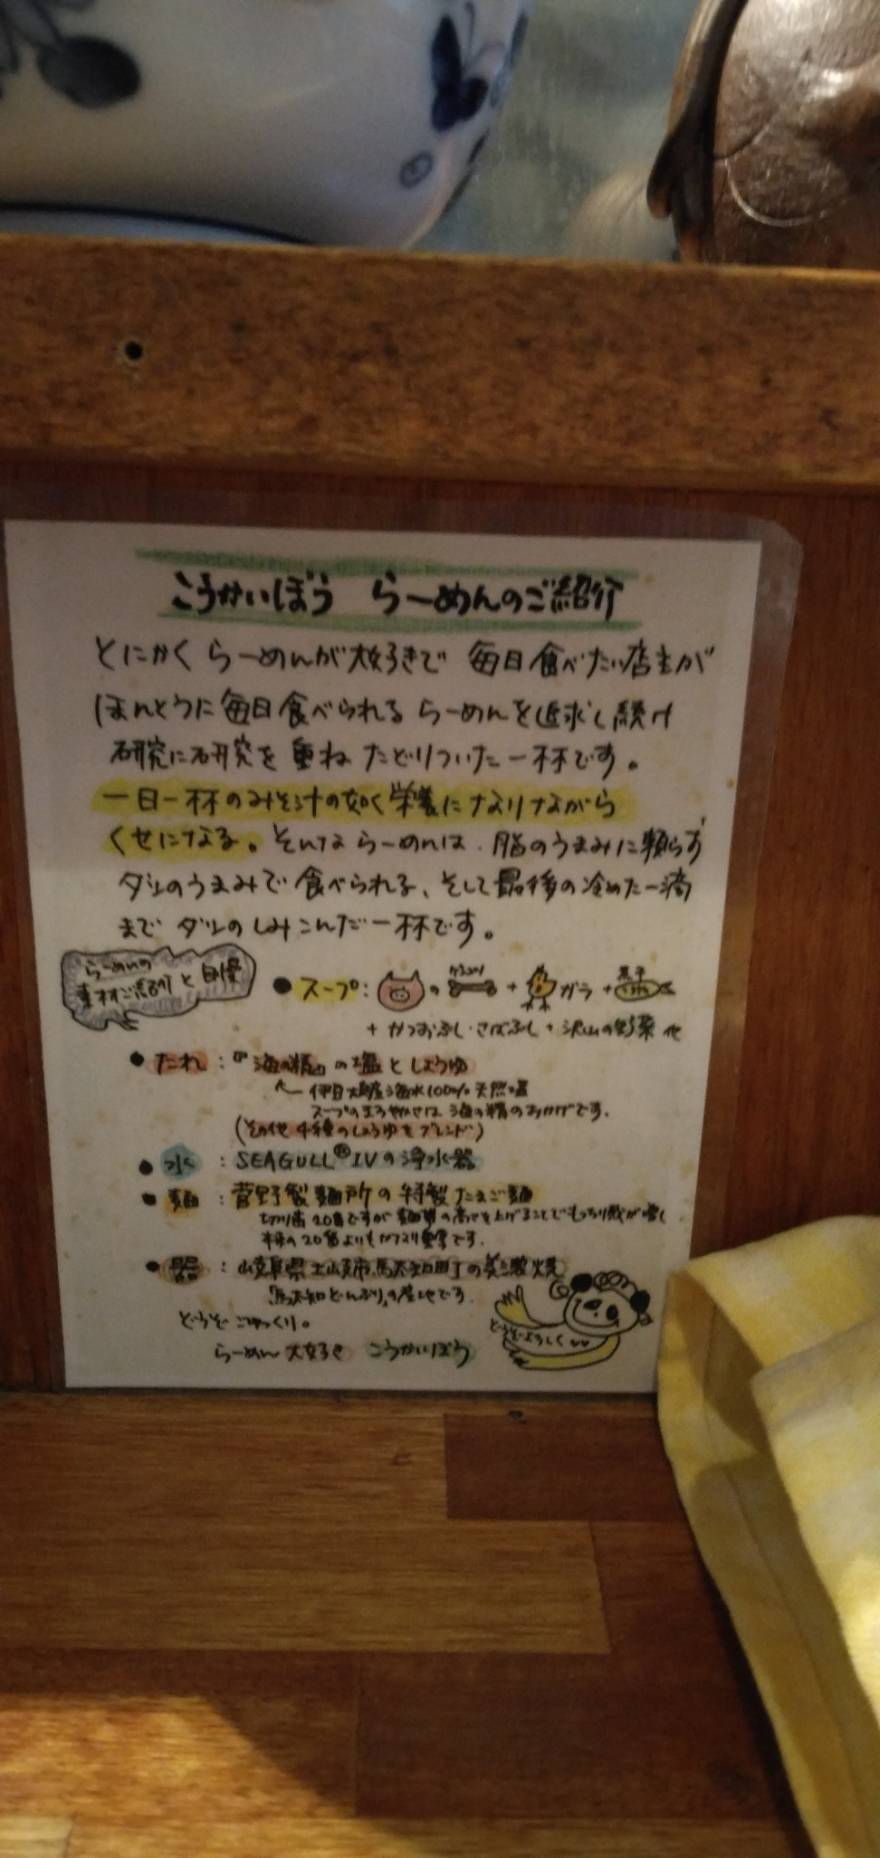 こうかいぼう らーめんのご紹介
とにかく らーめんが大好きで 毎日食べたい店主が
ほんとうに毎日食べられる らーめんを追求し続け
研究に研究を重ね たどりついた一杯です。
一日一杯のみそ汁の如く栄養になりながら
くせになる。そんな らーめんは、脂のうまみに頼らず
ダシのうまみで食べられる、そして最後の冷めた一滴
まで ダシのしみこんだ一杯です。
らーめんの
素材ご紹介と自慢
●スープ: の げんこつ + ガラ + 煮干
+ かつおぶし・さばぶし + 沢山の野菜 他
●たれ:『海の精』の塩としょうゆ
伊豆大島産海水100%天然塩
スープのまろやかさは 海の精のおかげです。
(その他 4種のしょうゆをブレンド)
●水:SEAGULL®IVの浄水器
●麺:菅野製麺所の特製たまご麺
切り歯20番ですが 麺帯の高さを上げることでもっちり感が増し
本来の20番よりもガッツリ重厚です。
●器:岐阜県土岐市駄知町の美濃焼
どんぶりの産地です。
どうぞごゆっくり。
らーめん大好き こうかいぼう
どうぞよろしく